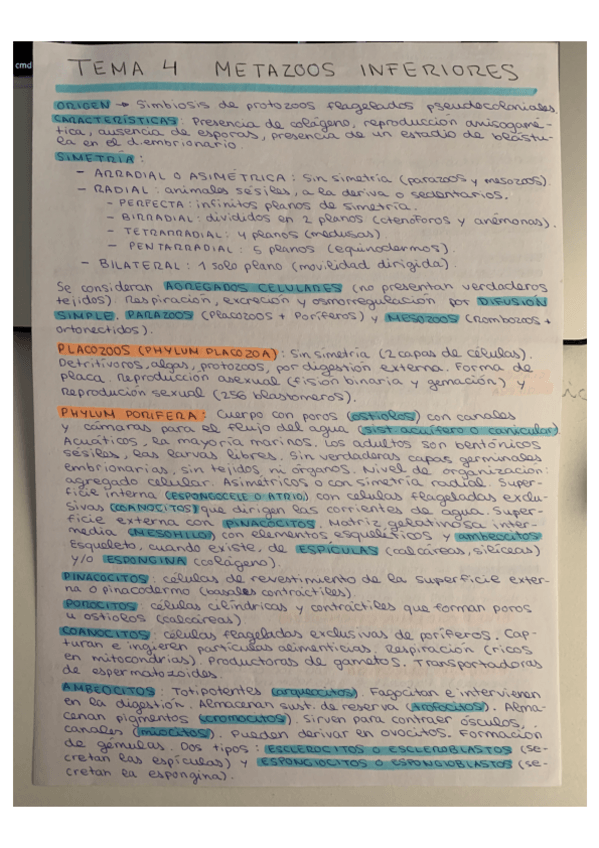 cmd
TEMA 4 METAZOOS INFERIORES
ORIGEN → Simbiosis de protozoos flagelados pseudocoloniales.
CARACTERÍSTICAS: Presencia de colágeno, reproducción anisogamé-
tica, ausencia de esporas, presencia de un estadio de blástu-
la en el d.embrionario.
SIMETRÍA:
- ARRADIAL O ASIMÉTRICA: Sin simetría (parazoos y mesozoos).
- RADIAL: animales sésiles, a la deriva o sedentarios.
- PERFECTA: infinitos planos de simetría.
- BIRRADIAL: divididos en 2 planos (ctenóforos y anémonas).
- TETRARRADIAL: 4 planos (medusas).
- PENTARRADIAL: 5 planos (equinodermos).
- BILATERAL: 1 solo plano (movilidad dirigida).
Se consideran AGREGADOS CELULARES (no presentan verdaderos
tejidos). Respiración, excreción y osmorregulación por DIFUSIÓN
SIMPLE. PARAZOOS (Placozoos + Poríferos) y MESOZOOS (Rombozoos +
ortonectidos).
PLACOZOOS (PHYLUM PLACOZOA): Sin simetría (2 capas de células).
Detritívoros, algas, protozoos, por digestión externa. Forma de
placa. Reproducción asexual (fisión binaria y gemación) y
Reprodución sexual (256 blastómeros).
PHYLUM PORIFERA: Cuerpo con poros (ostiolos) con canales
y cámaras para el flujo del agua (sist. acuífero o canicular).
Acuáticos, la mayoría marinos. Los adultos son bentónicos
sésiles, las larvas libres. Sin verdaderas capas germinales
embrionarias, sin tejidos ni órganos. Nivel de organización:
agregado celular. Asimétricos o con simetría radial. Super-
ficie interna (ESPONGOCELE O ATRIO) con células flageladas exclu-
sivas (COANOCITOS) que dirigen las corrientes de agua. Super-
ficie externa con PINACOCITOS. Matriz gelatinosa inter-
media (MESOHILO) con elementos esqueléticos y ambeocitos
Esqueleto, cuando existe, de ESPÍCULAS (calcáreas, silíceas)
y/o ESPONGINA (colágeno).
PINACOCITOS: células de revestimiento de la superficie exter-
na o pinacodermo (basales contráctiles)
POROCITOS: células cilíndricas y contráctiles que forman poros
u ostiolos (calcáreas)
COANOCITOS: células flageladas exclusivas de poríferos. Cap-
turan e ingieren partículas alimenticias. Respiración (ricos
en mitocondrias). Productoras de gametos. Transportadoras
de espermatozoides.
AMBEOCITOS: Totipotentes (arqueocitos). Fagocitan e intervienen
en la digestión. Almacenan sust. de reserva (trofocitos). Alma-
cenan pigmentos (cromocitos). Sirven para contraer ósculos,
canales (miocitos). Pueden derivar en ovocitos. Formación
de gémulas. Dos tipos: ESCLEROCITOS O ESCLEROBLASTOS (se-
cretan las espículas) y ESPONGIOCITOS O ESPONGIOBLASTOS (se-
cretan la espongina).